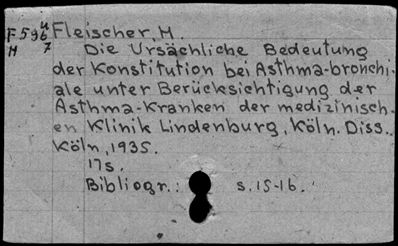 F596 u Fleischer, M.
M 7 Die Ursächliche Bedeutung
der Konstitution bei Asthma-bronchi-
ale unter Berücksichtigung der
Asthma-Kranken der medizinisch-
en Klinik Lindenburg, Köln. Diss.
Köln, 1935.
17s.
Bibliogr.: s.15-16.